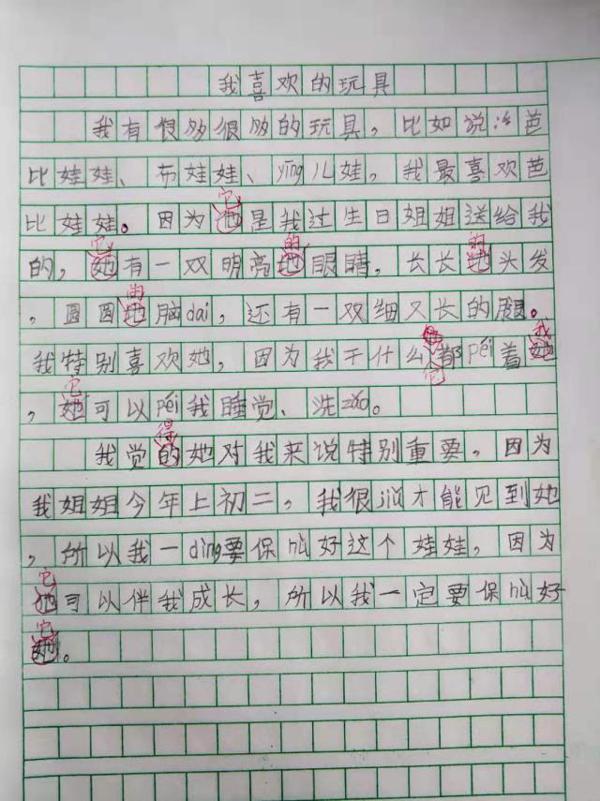 我喜欢的玩具
我有很多很多的玩具，比如说洋芭
比娃娃、布娃娃、yīng儿娃，我最喜欢芭
它
比娃娃。因为她是我过生日姐姐送给我
它 的 的
的，她有一双明亮地眼睛，长长地头发
的
，圆圆地脑dai，还有一双细又长的腿。
我特别喜欢她，因为我干什么都péi着她
它 它 我
，她可以péi我睡觉、洗zǎo。
得
我觉的她对我来说特别重要，因为
我姐姐今年上初二，我很jiǔ才能见到她
，所以我一dìng要保hù好这个娃娃，因为
它
她可以伴我成长，所以我一定要保hù好
它
她。